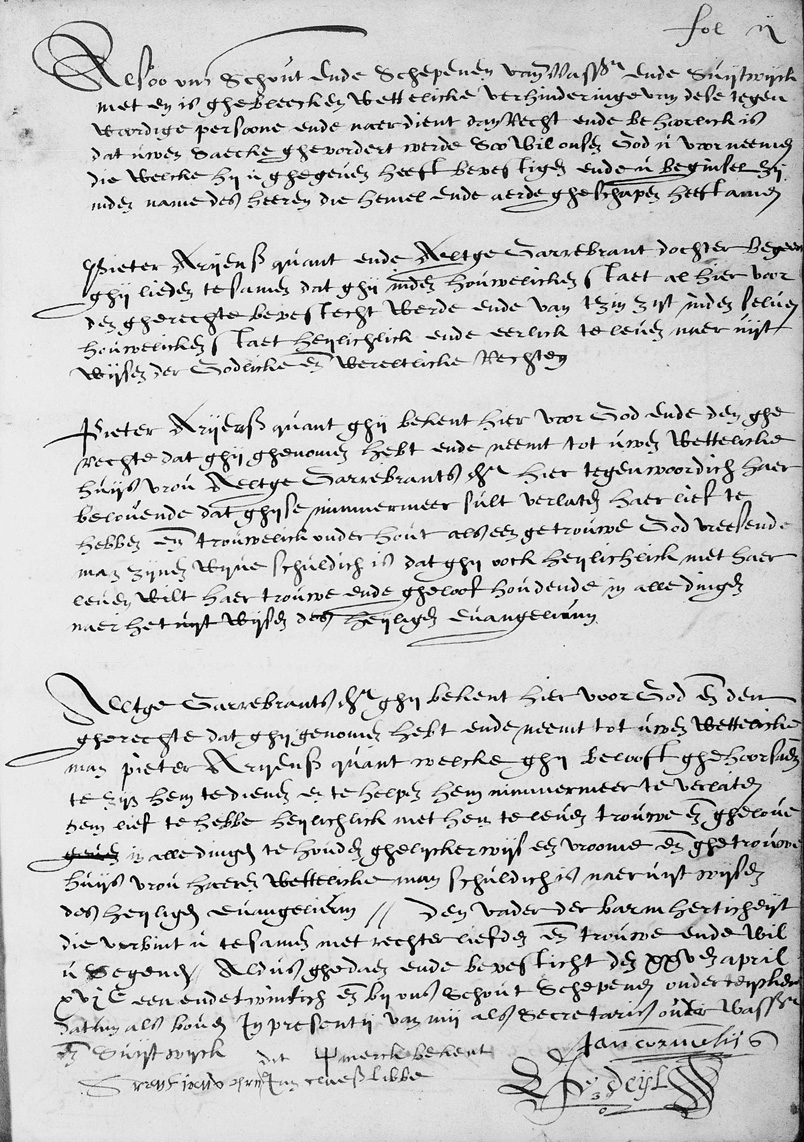 fol ij
Alsoo ons Schout ende Schepenen van Wassr ende Suijtwijck
niet en is ghebleecken wettelicke verhinderinge van dese tegen
woordige persoone ende naerdient dan Recht ende behoorlick is
dat uwen saecke ghevordert werde soo wil onsen God u voorneemen
die welcke hij u ghegeven heeft bevestigen ende u beginsel zij
inden name des heeren die hemel ende aerde gheschapen heeft amen
Pieter Arijensz quant ende Aeltge Garrebrant dochter begeeren
ghij lieden tesamen dat ghij inden houwelicken staet al hier voor
den gherechte bevestecht werde ende van zin zijt inden selven
houwelicken staet heylichlick ende eerlick te leven naer uijt
wijsen der Godlicke en wereltlicke Rechten
Pieter Arijensz quant ghij bekent hier voor God ende den ghe
rechte dat ghij ghenomen hebt ende neemt tot uwen wettelicke
huijs vrou Aeltge Garrebrants dr hier tegenwoordich haer
belovende dat ghijse nimmermeer sult verlaten haer lief te
hebben en trouwelick onderhout als een getrouwe God vreesende
man zijnen wijve schuldich is dat ghij oock heylichlick met haer
leven wilt haer trouwe ende gheloof houdende in alle dingen
naer het uijt wijsen des heyligen evangelium
Aeltge Garrebrants dr ghij bekent hier voor God en den
gherechte dat ghij genomen hebt ende neemt tot uwen wettelicke
man pieter Arijensz quant welcke ghij belooft ghehoorsaem
te zijn hem te dienen en te helpen hem nimmermeer te verlaten
hem lief te hebbe heylichlick met hem te leven trouwe en ghelove
in alle dingen te houden ghelyckerwijs een vroome en ghetrouwe
huijs vrou haeren wettelicke man schuldich is naer uijt wijsen
des heyligen evangelium // Den vader der barmherticheijt
die verbint u tesamen met rechter liefden en trouwe ende wil
u segenen Aldus ghedaen ende bevesticht den xxven april
xvic een ende twintich en bij ons Schout Schepenen onderteijckent
datum als boven In presentij van mij als secretaris over Wassr
en Suijtwijck dit merck bekent
Jan cornelis
Jan claesz libbe
deijl